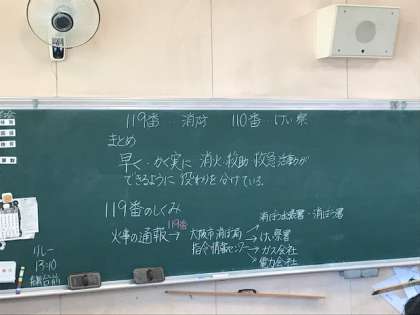 119番…消防　110番…けい察
まとめ
早く・かく実に 消火・救助・救急活動が
できるように 役わりを分けている。
119番のしくみ
119番
火事の通報→大阪市消防局
指令情報センター
消ぼう出張所・消ぼう署
けい察署
ガス会社
電力会社
リレー
13:10
朝台前